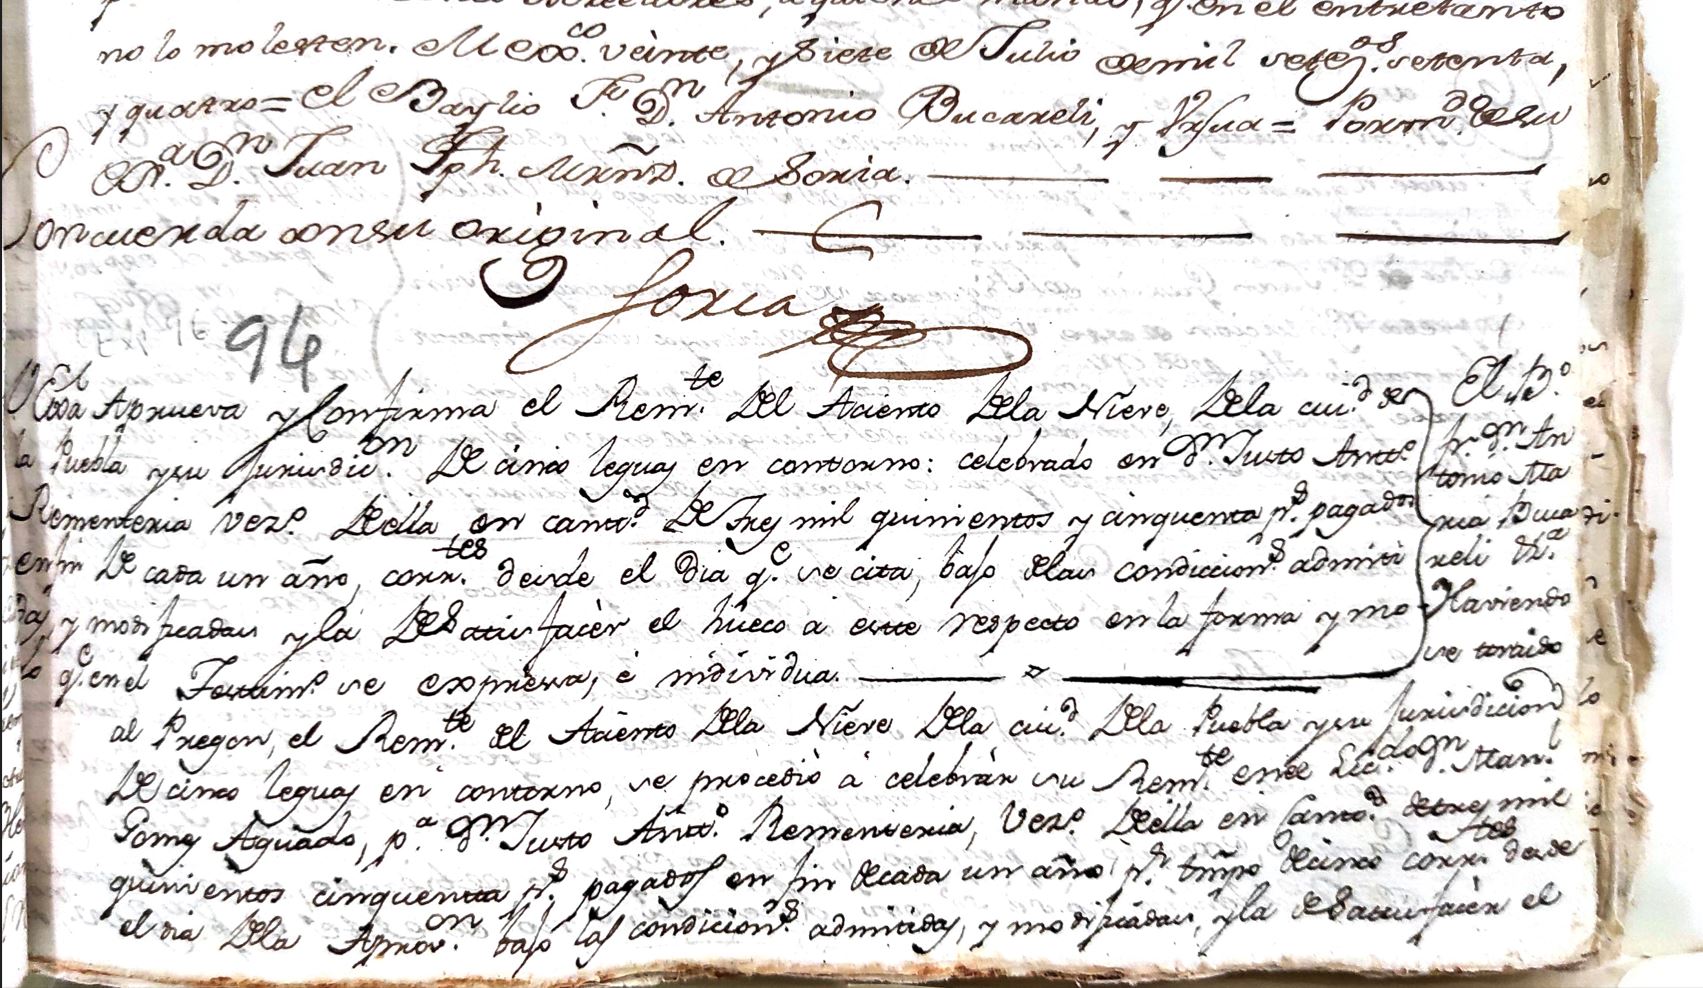 acreedores, a quienes mando, q.e en el entretanto
no lo molesten. Mexco. veinte, y siete de Julio de mil setes. setenta,
y quatro = el Baylio F. Dn. Antonio Bucareli, y Ursua = Por mdo. de su
Exa. Dn. Juan Jph. Mrñz. de Soria.
Concuerda con su original.
Soria
94
VExa Aprueva y Confirma el Remte. Del Aciento Dela Nieve, Dela ciud. de
la Puebla y su Jurisdicn. De cinco leguas en contorno: celebrado en Dn. Justo Antto.
Rementeria vezo. Deella, en cantd. De trez mil quinientos y cinquenta ps. pagados
en fin De cada un año, corrtes. desde el dia qe. se cita, bajo delas condicions. admiti
das y modificadas y la De Satisfacèr el hueco a este respecto en la forma y mo
qe. en el Testimo. se expresa, è individua.
El Bo.
Fr. Dn. An
tonio Ma
ria Buca
reli &a.
Haviendo
se traido
al Pregon, el Remte. del Aciento Dela Nieve Dela ciud. Dela Puebla y su Jurisdicion
De cinco leguas en contorno, se procediò à celebràr su Remte. en el Licdo. Dn. Manl.
Gomez Aguado, pa. Dn. Justo Antto. Rementeria, Vezo. Deella en Cantd. de trez mil
quinientos cinquenta ps. pagados en fin de cada un año pr. tmpo de cinco corrtes. desde
el dia Dela Aprovn. bajo las condicions. admitidas, y modificadas, y la de Satisfacèr el